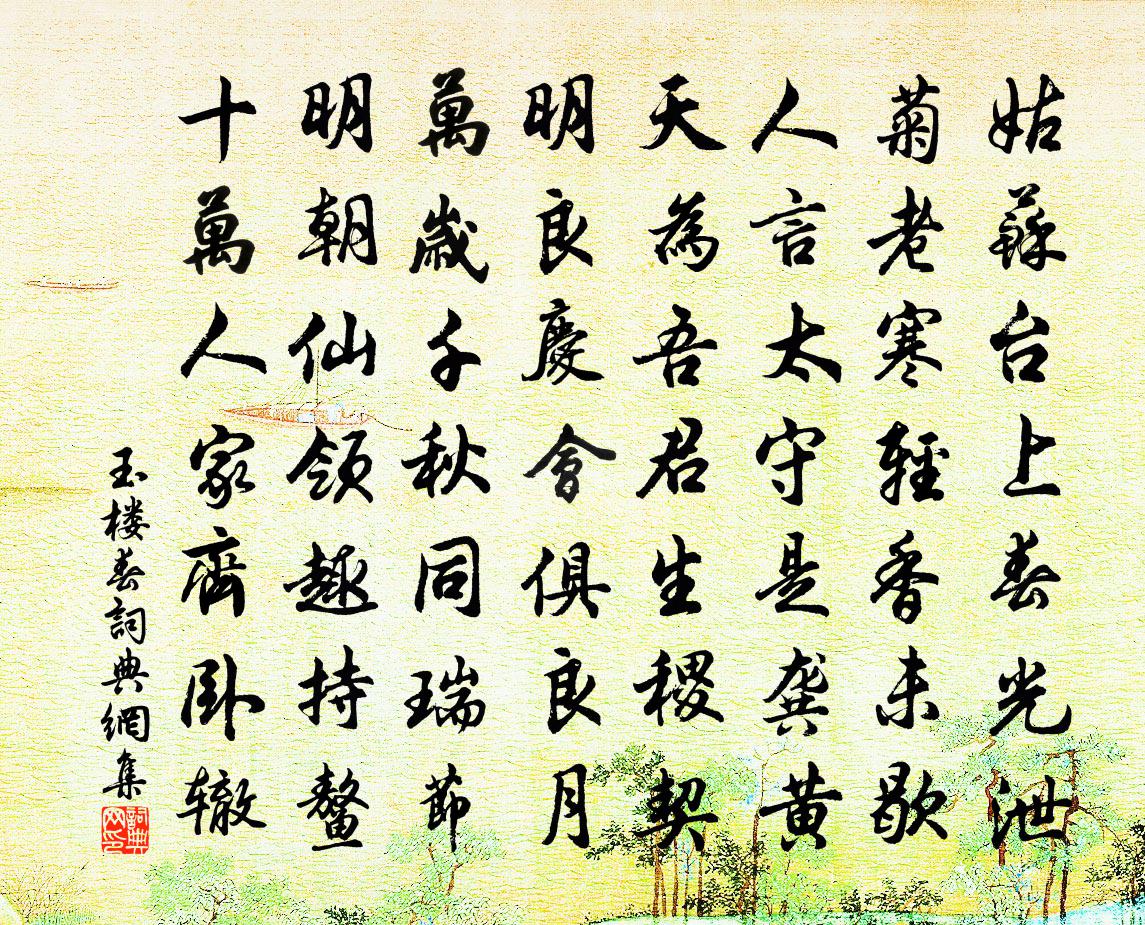 姑蘇台上春光泄
菊老寒輕香未歇
人言太守是龔黄
天為吾君生稷契
明良慶會俱良月
萬歲千秋同瑞節
明朝仙領趣持鳌
十萬人家齊卧辙
玉楼春詞典網集
詞典网印